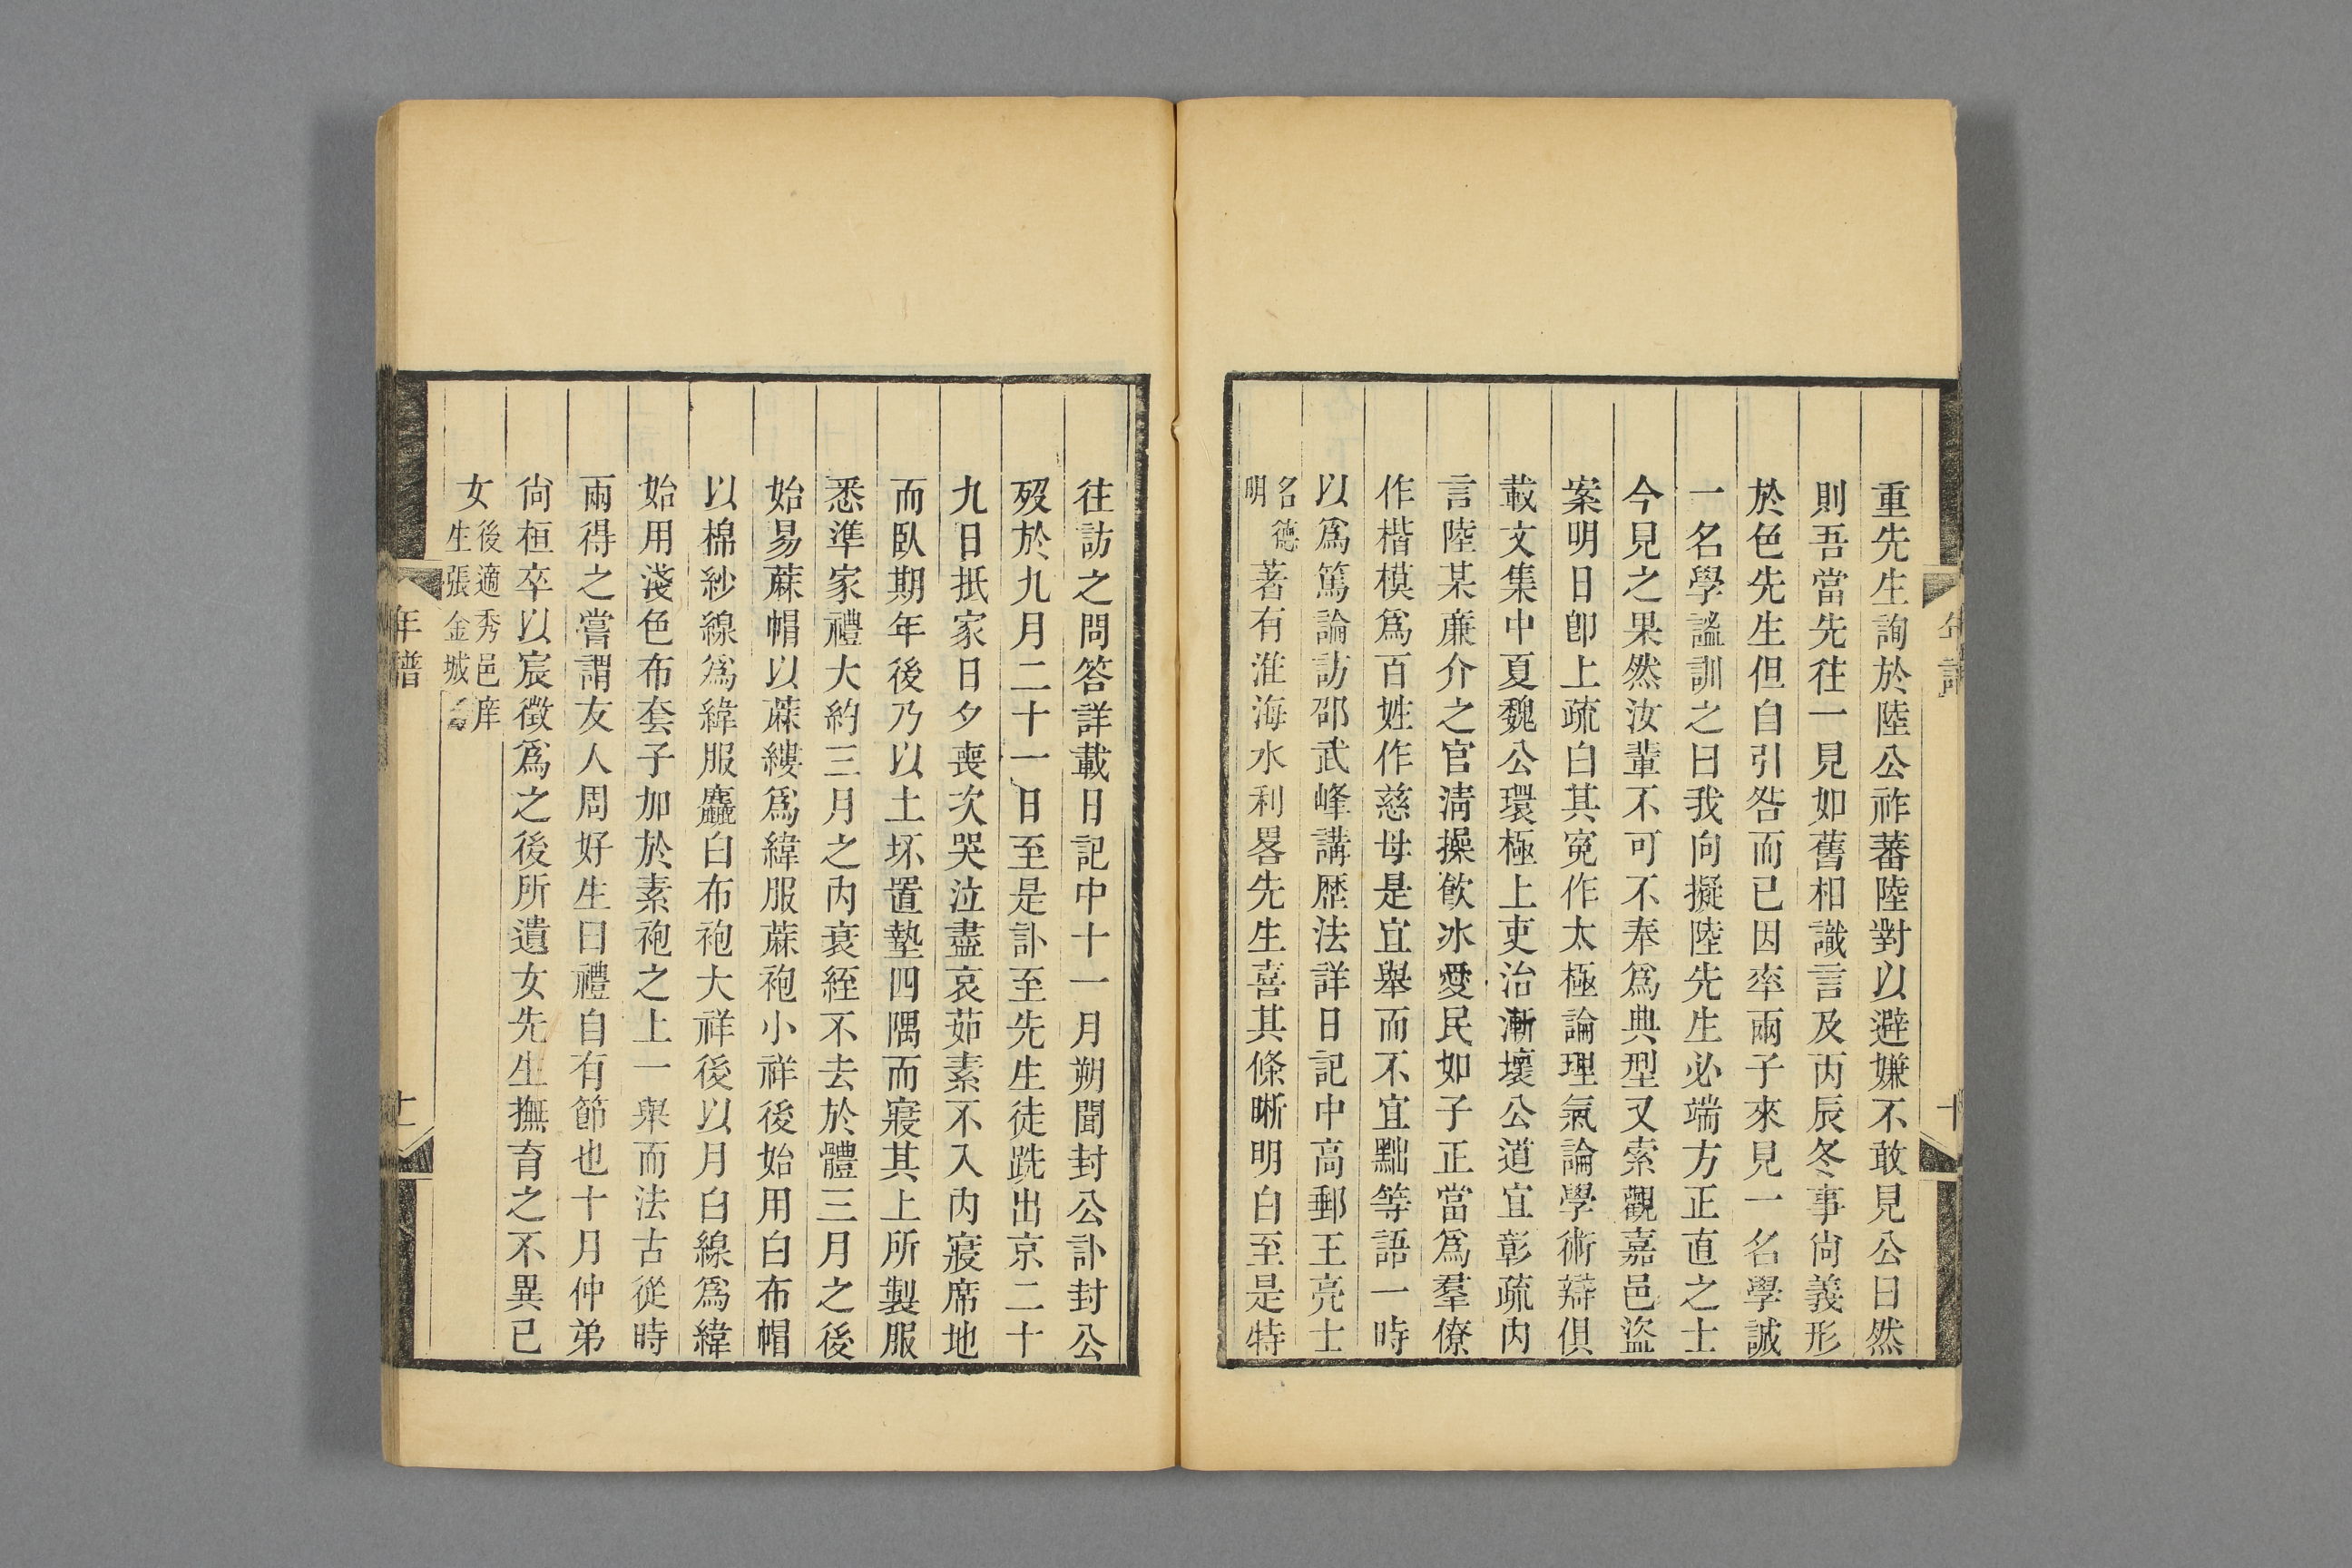 重先生詢於陸公祚蕃陸對以避嫌不敢見公曰然
則吾當先往一見如舊相識言及丙辰冬事尙義形
於色先生但自引咎而已因率兩子來見一名學誠
一名學謐訓之曰我向擬陸先生必端方正直之士
今見之果然汝輩不可不奉爲典型又索觀嘉邑盜
案明日卽上疏白其寃作太極論理氣論學術辯俱
載文集中夏魏公環極上吏治漸壞公道宜彰疏内
言陸某廉介之官淸操飮冰愛民如子正當爲羣僚
作楷模爲百姓作慈母是宜舉而不宜黜等語一時
以爲篤論訪邵武峰講歴法詳日記中高郵王亮士
名德明著有淮海水利畧先生喜其條晰明白至是特
往訪之問答詳載日記中十一月朔聞封公訃封公
歿於九月二十一日至是訃至先生徒跣出京二十
九日抵家日夕喪次哭泣盡哀茹素不入内寢席地
而臥期年後乃以土坏置墊四隅而寢其上所製服
悉準家禮大約三月之内衰絰不去於體三月之後
始易蔴帽以蔴縷爲緯服蔴袍小祥後始用白布帽
以棉紗線爲緯服麤白布袍大祥後以月白線爲緯
始用淺色布套子加於素袍之上一舉而法古從時
兩得之嘗謂友人周好生曰禮自有節也十月仲弟
尙桓卒以宸徵爲之後所遺女先生撫育之不異已
女後適秀邑庠生張金城
年譜
十
年譜
十一